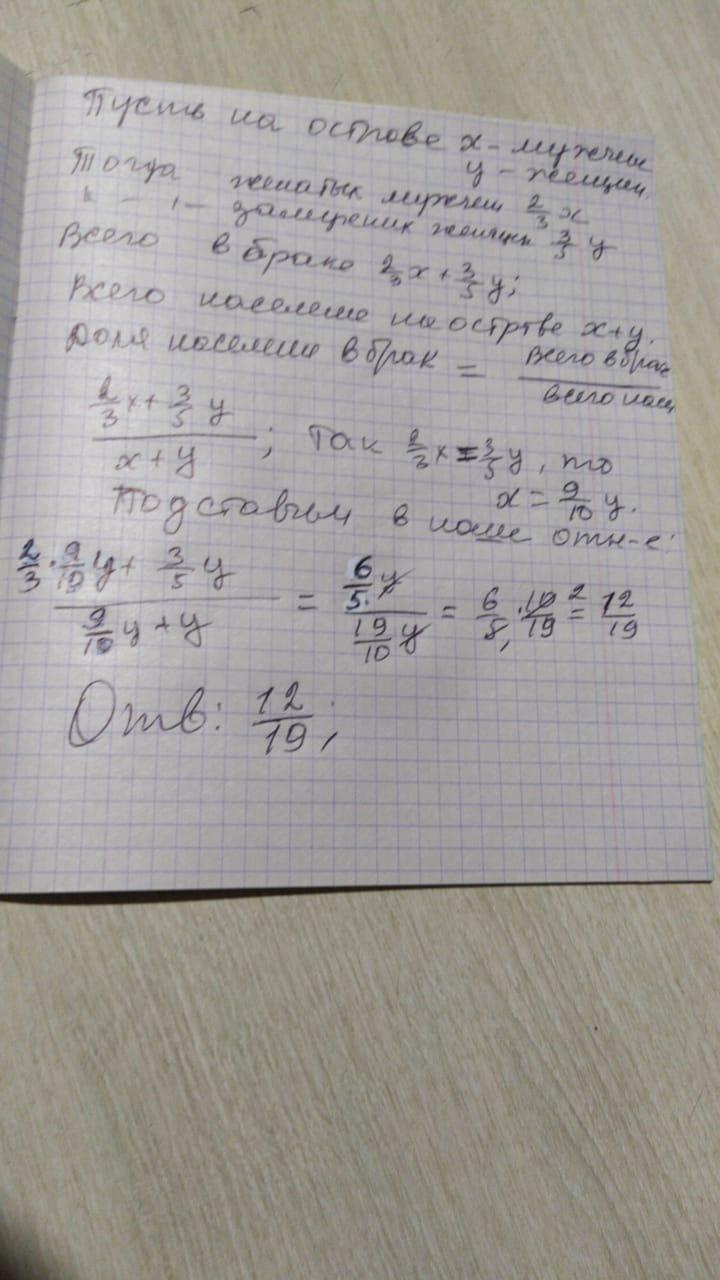 Пусть на острове x - мужчин
y - женщин.
Тогда женатых мужчин 2/3 x
" - " - замужних женщин 3/5 y
Всего в браке 2/3 x + 3/5 y;
Всего населения на острове x+y.
Доля населения в браке = Всего в браке / всего насел
(2/3 x + 3/5 y) / (x + y) ; Так 2/3 x = 3/5 y, то
x = 9/10 y.
Подставим в наше отн-е:
(2/3 · 9/10 y + 3/5 y) / (9/10 y + y) = (6/5 y) / (19/10 y) = 6/5 · 10/19 2 = 12/19
Отв: 12/19;